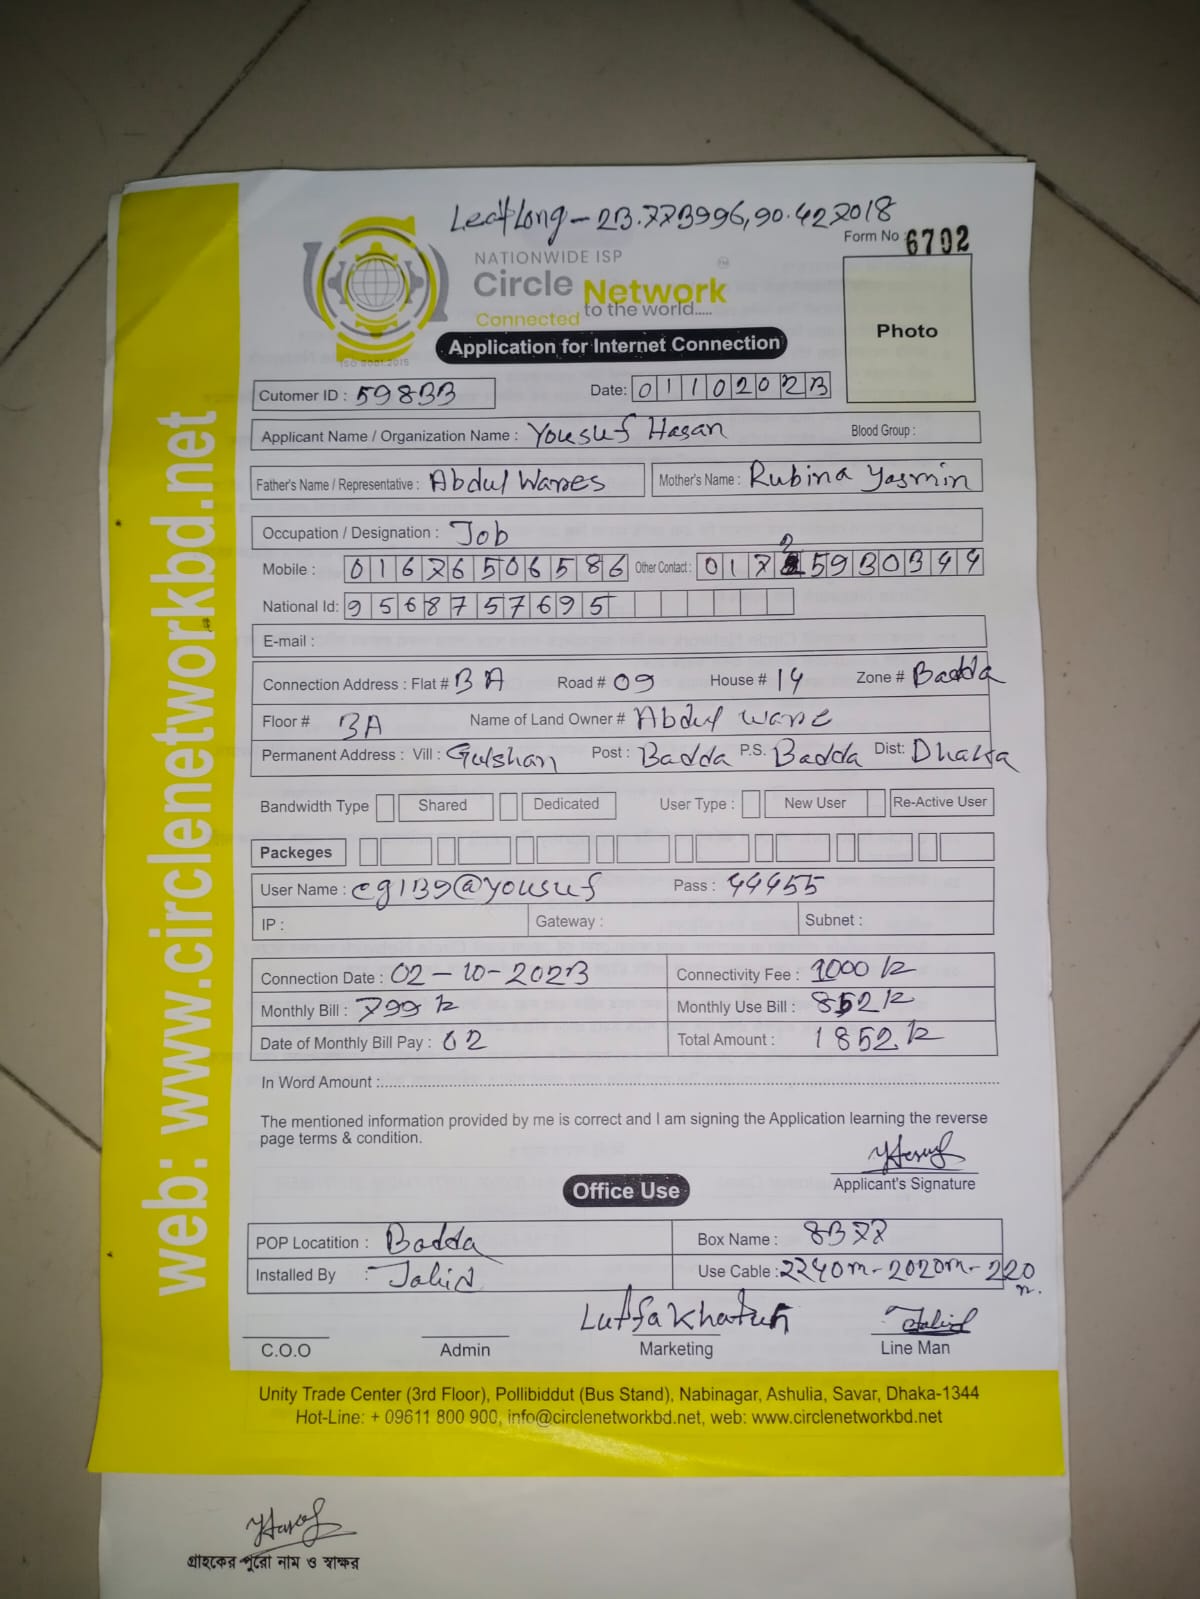 Leat Long - 23.773996, 90.427018
Form No : 6702
NATIONWIDE ISP
Circle Network
Connected to the world.....
ISO 9001:2015
Application for Internet Connection
Photo
Cutomer ID : 59833
Date: 01102023
Applicant Name / Organization Name : Yousuf Hasan Blood Group :
Father's Name / Representative : Abdul Wares
Mother's Name : Rubina Yasmin
Occupation / Designation : Job
Mobile : 01676506586 Other Contact : 01725930344
National Id: 9568757695
E-mail :
Connection Address : Flat # 3A Road # 09 House # 14 Zone # Badda
Floor # 3A Name of Land Owner # Abdul Ware
Permanent Address : Vill : Gulshan Post : Badda P.S. Badda Dist: Dhaka
Bandwidth Type Shared Dedicated User Type : New User Re-Active User
Packeges
User Name : cg139@yousuf Pass : 44455
IP : Gateway : Subnet :
Connection Date : 02-10-2023 Connectivity Fee : 1000 tk
Monthly Bill : 799 tk Monthly Use Bill : 852 tk
Date of Monthly Bill Pay : 02 Total Amount : 1852 tk
In Word Amount :
The mentioned information provided by me is correct and I am signing the Application learning the reverse
page terms & condition.
Applicant's Signature
Office Use
POP Locatition : Badda Box Name : 8377
Installed By : Jahid Use Cable : 2240m-2020m-220
m.
Lutfa Khatun Jahid
C.O.O Admin Marketing Line Man
Unity Trade Center (3rd Floor), Pollibiddut (Bus Stand), Nabinagar, Ashulia, Savar, Dhaka-1344
Hot-Line: + 09611 800 900, info@circlenetworkbd.net, web: www.circlenetworkbd.net
web: www.circlenetworkbd.net
গ্রাহকের পুরো নাম ও স্বাক্ষর